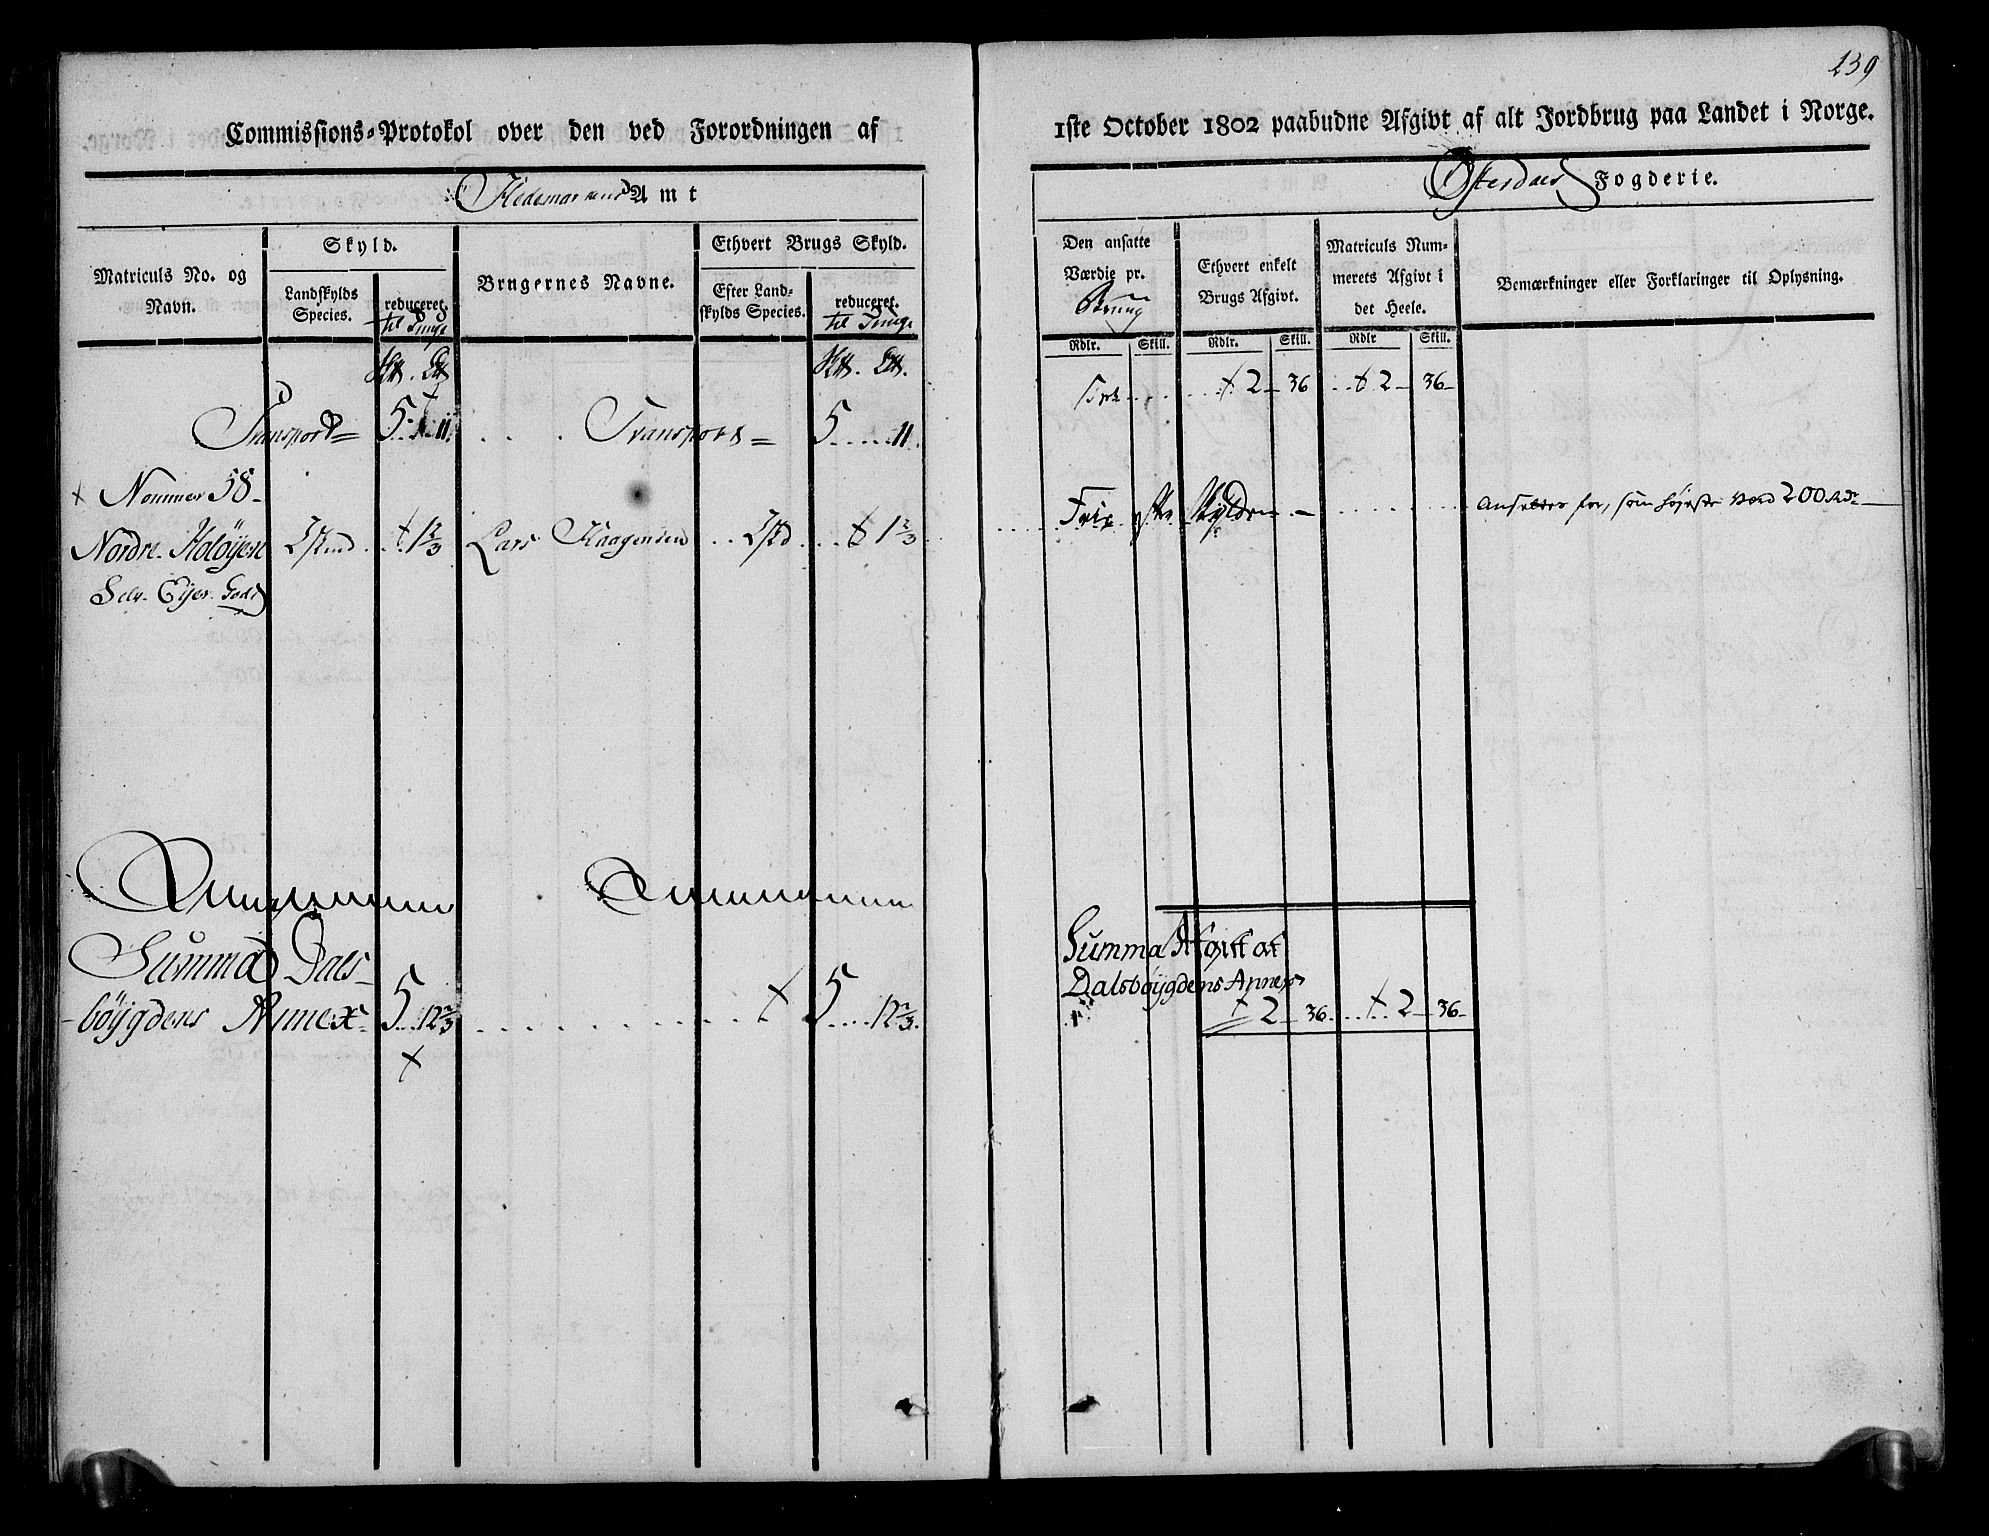 239
Commissions-Protokol over den ved Forordningen af 1ste October 1802 paabudne Afgivt af alt Jordbrug paa Landet i Norge.
Hedemarkens Amt
Østerdals Fogderie.
Matriculs No. og Navn.
Skyld.
Landskylds Species.
reduceret.
til Tunge
Brugernes Navne.
Ethvert Brugs Skyld.
Efter Landskylds Species.
reduceret.
til Tunge
Den ansatte Værdie pr.
Brug
Ethvert enkelt Brugs Afgivt.
Matriculs Nummerets Afgivt i det Heele.
Bemærkninger eller Forklaringer til Oplysning.
Rdlr. Skill. Rdlr. Skill. Rdlr Skill.
Transport= 5....11. .... Transport= 5.....11.
...... 2 — 36 ... 2 — 36 —
Nommer 58 —
Nordre Holøyen 1 Skind ... 1 2/3 Lars Haagensen .. 1 skd .... 1 2/3
Selv-Eijer-Gods
Ansættes for, som høyeste Værd 200 Rdr
Summa Dals-
bøygdens Annex 5...12 2/3 ........ 5.....12 2/3.
Summa Afgivt af
Dalsbøygdens Annex
2 — 36 .... 2 — 36 —